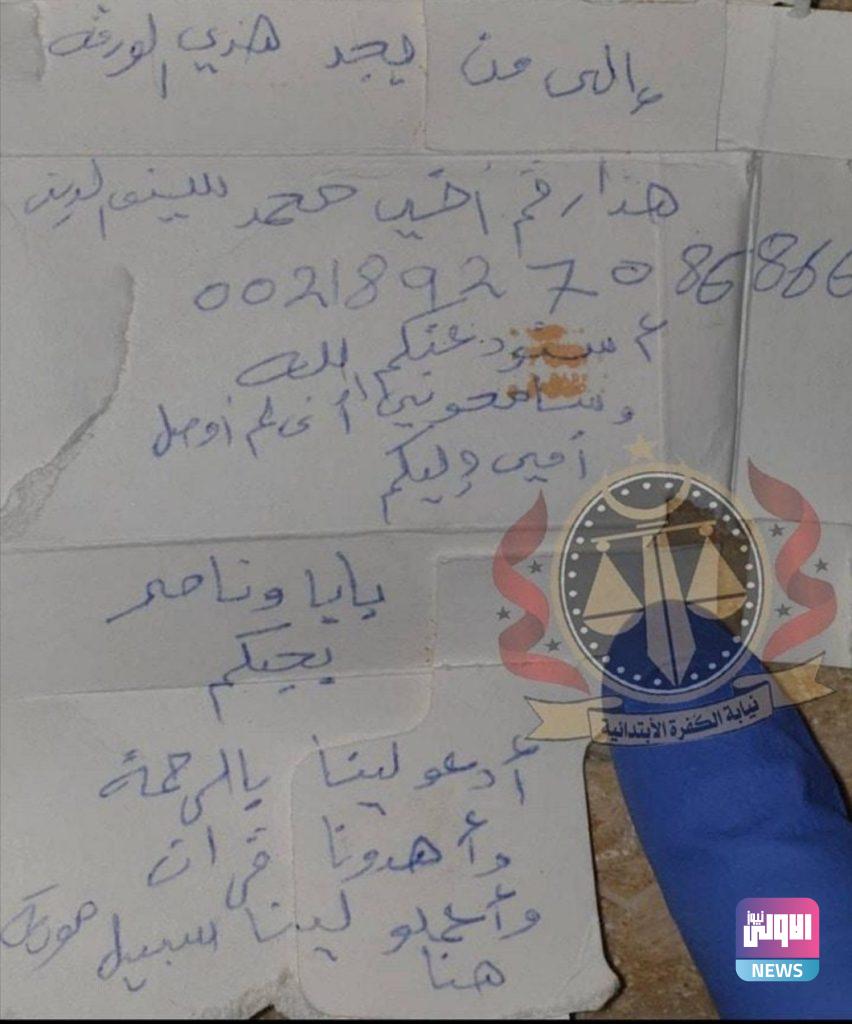 وإلى من يجد هذي الورقه
هذا رقم أخي محمد سيف الدين
00218927086866
استودعتكم الله
وسامحوني أنى لم أوصل
أمي وإليكم
بابا وناصر
بحبكم
أدعو لينا بالرحمة
وأهدونا قرأن
وأعملو لينا سبيل مويه
هنا
نيابة الكفرة الأبتدائية
الاولى نيوز
NEWS